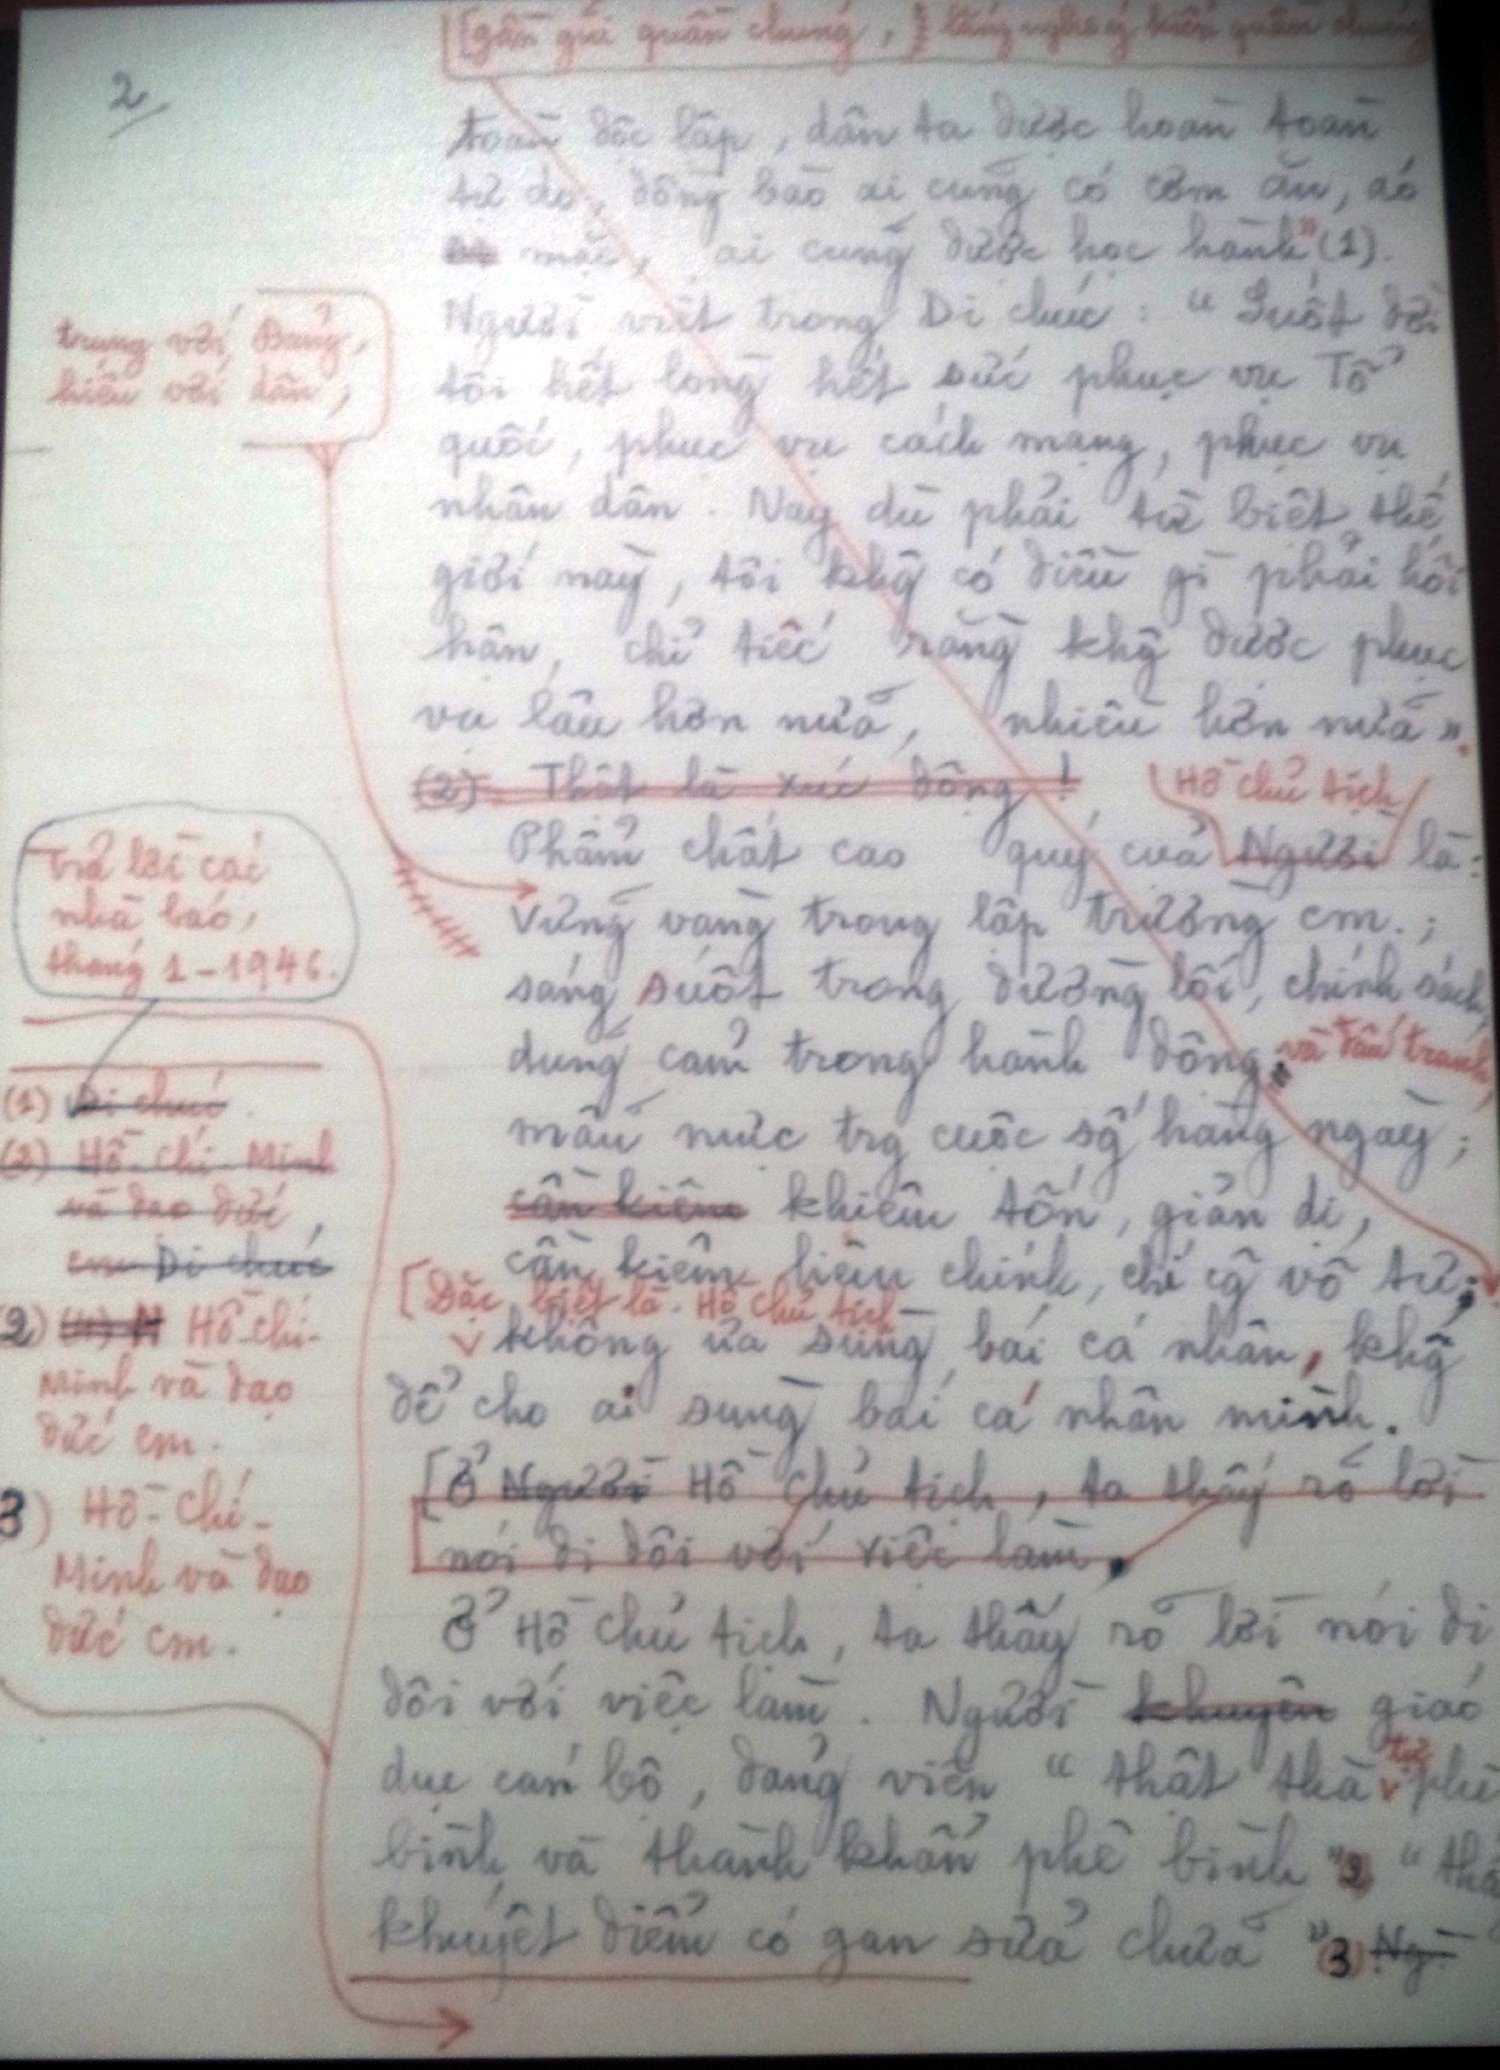 [gần gũi quần chúng, lắng nghe ý kiến quần chúng
2
toàn độc lập, dân ta được hoàn toàn
tự do, đồng bào ai cũng có cơm ăn, áo
mặc, ai cũng được học hành" (1).
Người viết trong Di chúc : "Suốt đời
tôi hết lòng hết sức phục vụ Tổ
quốc, phục vụ cách mạng, phục vụ
nhân dân. Nay dù phải từ biệt thế
giới này, tôi khg có điều gì phải hối
hận, chỉ tiếc rằng khg được phục
vụ lâu hơn nữa, nhiều hơn nữa".
(2). Thật là xúc động !
Hồ chủ tịch
Phẩm chất cao quý của Người là :
trung với Đảng,
hiếu với dân,
Vững vàng trong lập trường cm. ;
sáng suốt trong đường lối, chính sách,
dũng cảm trong hành động
và đấu tranh,
mẫu mực trg cuộc sg hàng ngày ;
cần kiệm khiêm tốn, giản dị,
cần kiệm liêm chính, chí cg vô tư ;
[Đặc biệt là Hồ chủ tịch
không ưa sùng bái cá nhân, khg
để cho ai sùng bái cá nhân mình.
[Ở Người Hồ chủ tịch, ta thấy rõ lời
nói đi đôi với việc làm,
Ở Hồ chủ tịch, ta thấy rõ lời nói đi
đôi với việc làm. Người khuyên giáo
dục cán bộ, đảng viên "thật thà tự phê
bình và thành khẩn phê bình" 2
khuyết điểm có gan sửa chữa" 3 Ng
Trả lời các
nhà báo,
tháng 1-1946.
(1) Di chúc
(2) Hồ Chí Minh
và đạo đức
cm Di chúc
2) Hồ-Chí-
Minh và đạo
đức cm.
3) Hồ-Chí-
Minh và đạo
đức cm.